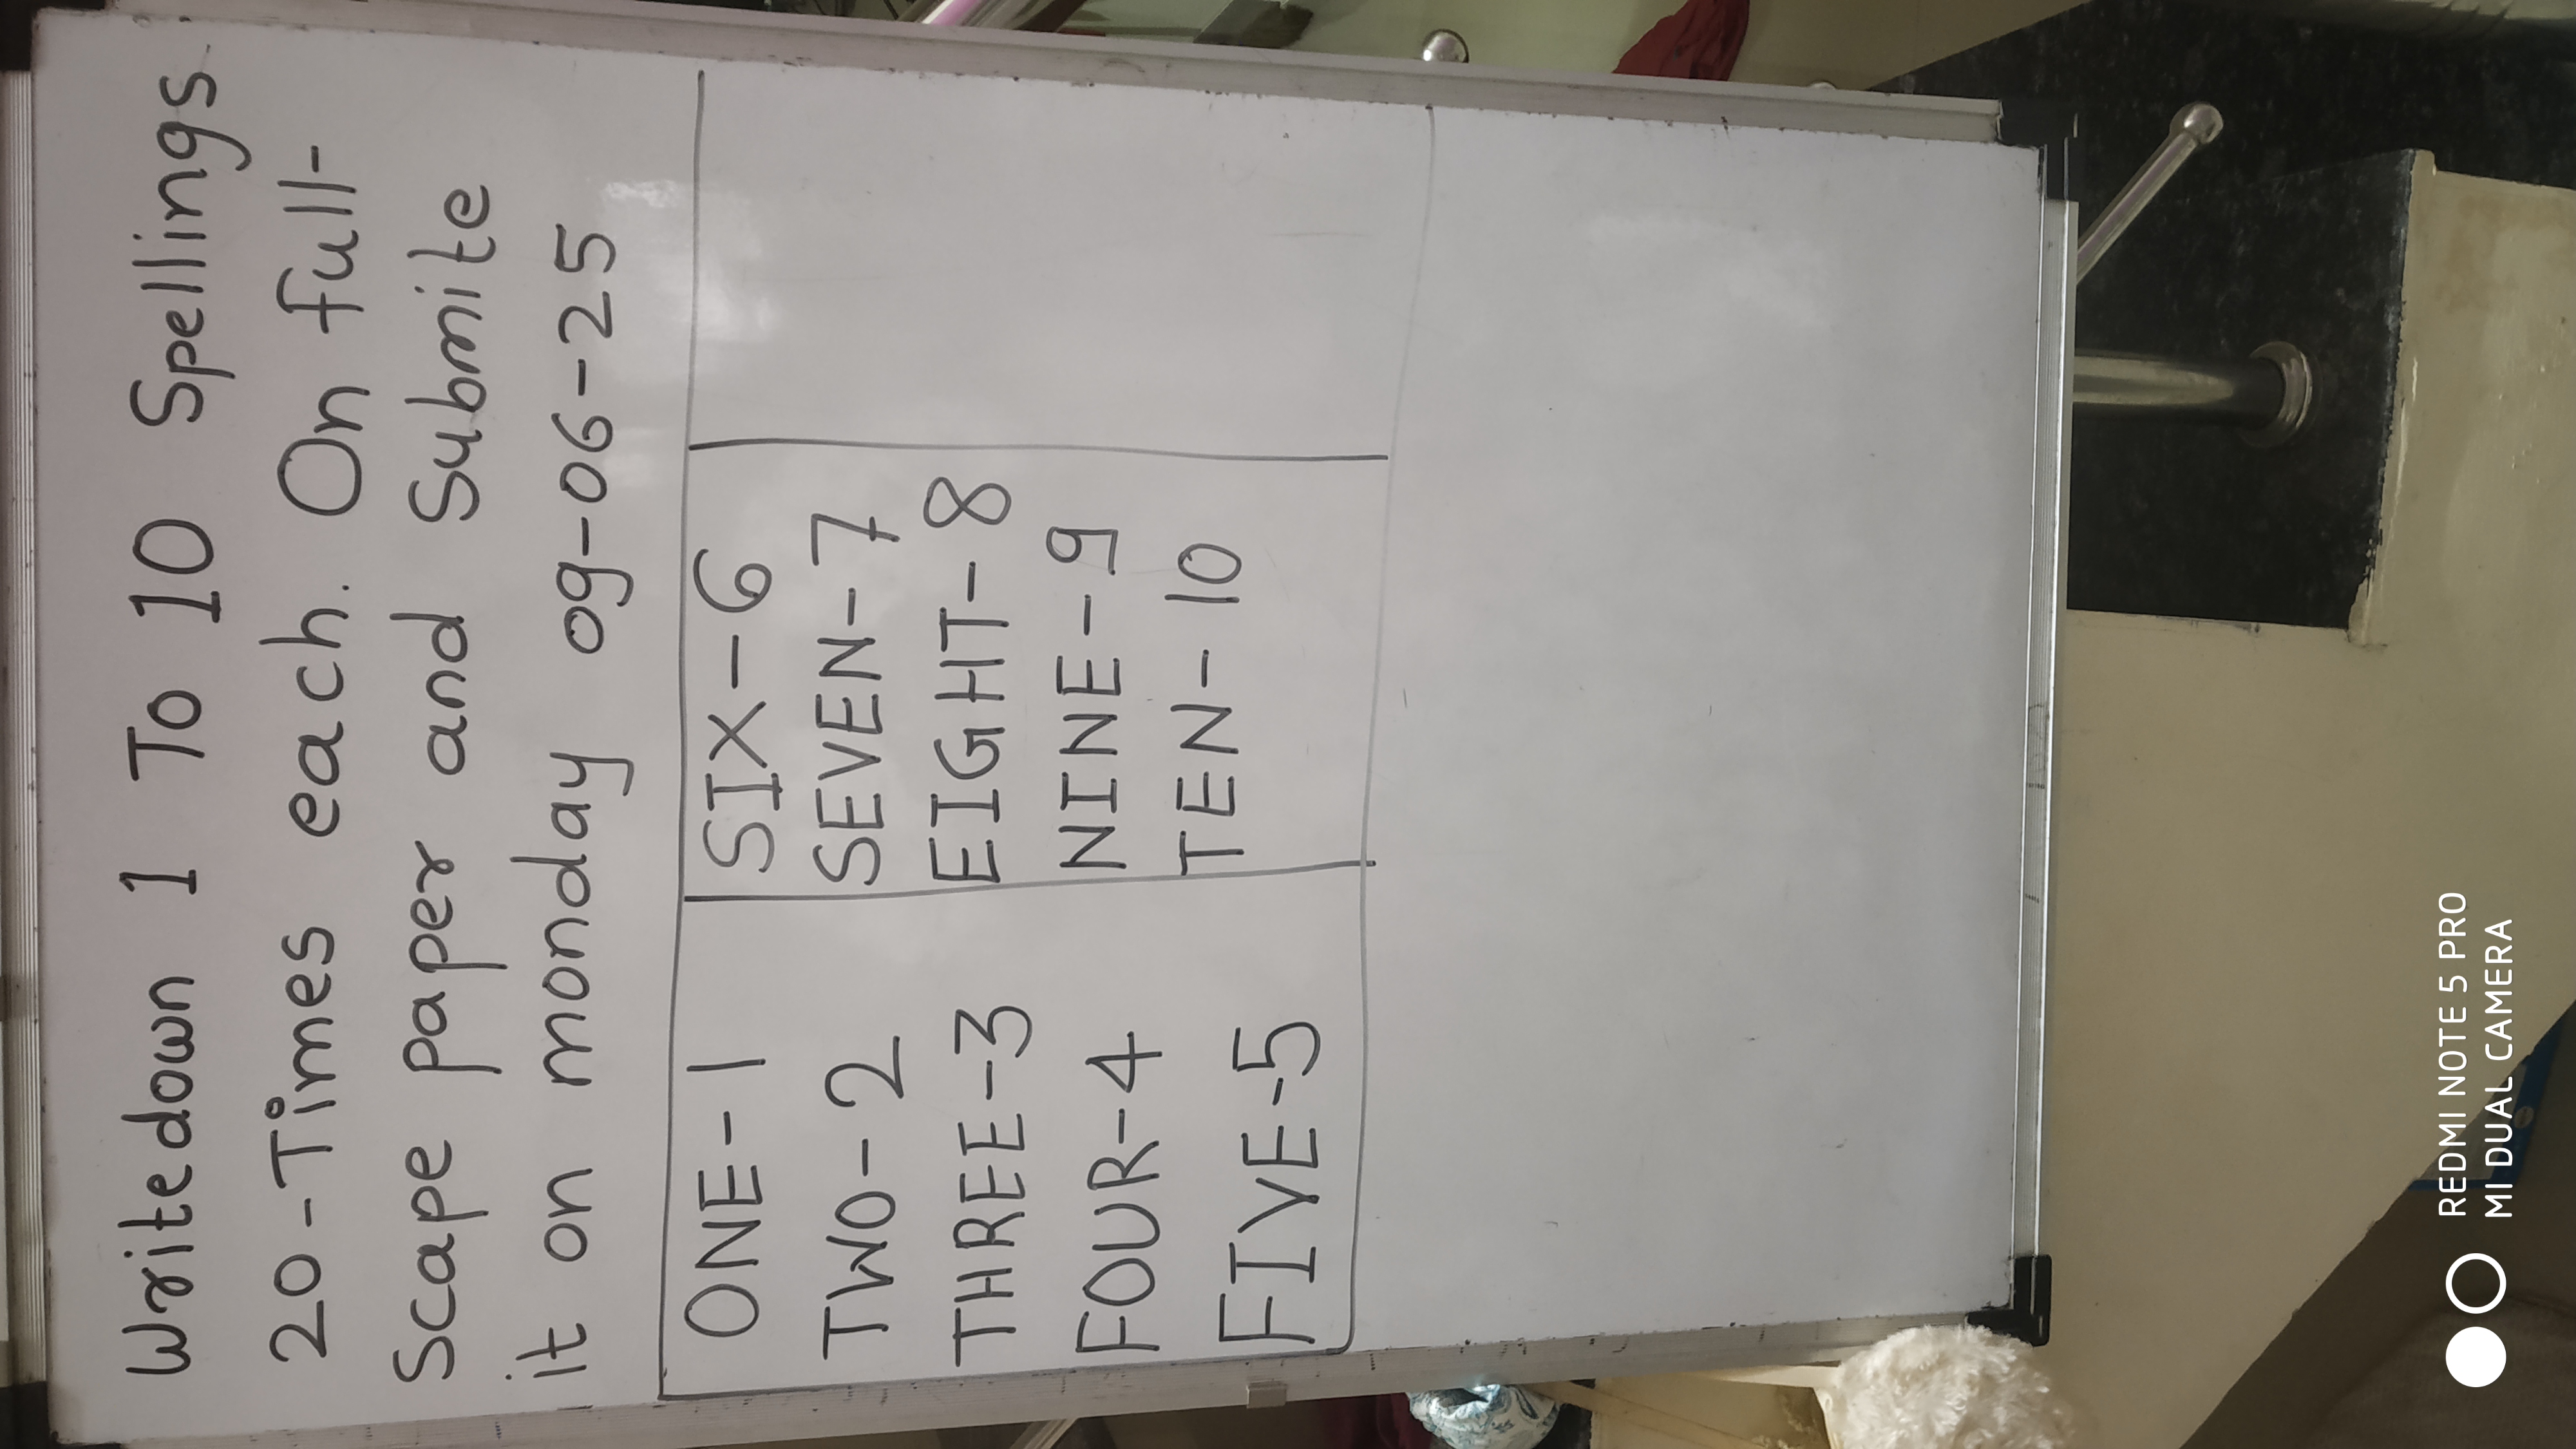 Writedown 1 To 10 Spellings
20-Times each. On full-
Scape paper and Submite
it on monday 09-06-25
ONE-1
TWO-2
THREE-3
FOUR-4
FIVE-5
SIX-6
SEVEN-7
EIGHT-8
NINE-9
TEN-10
REDMI NOTE 5 PRO
MI DUAL CAMERA